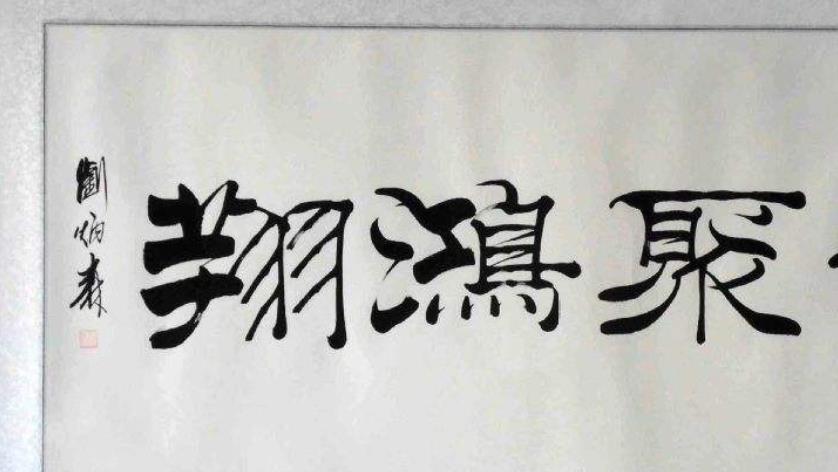 聚鴻翔
劉炳森